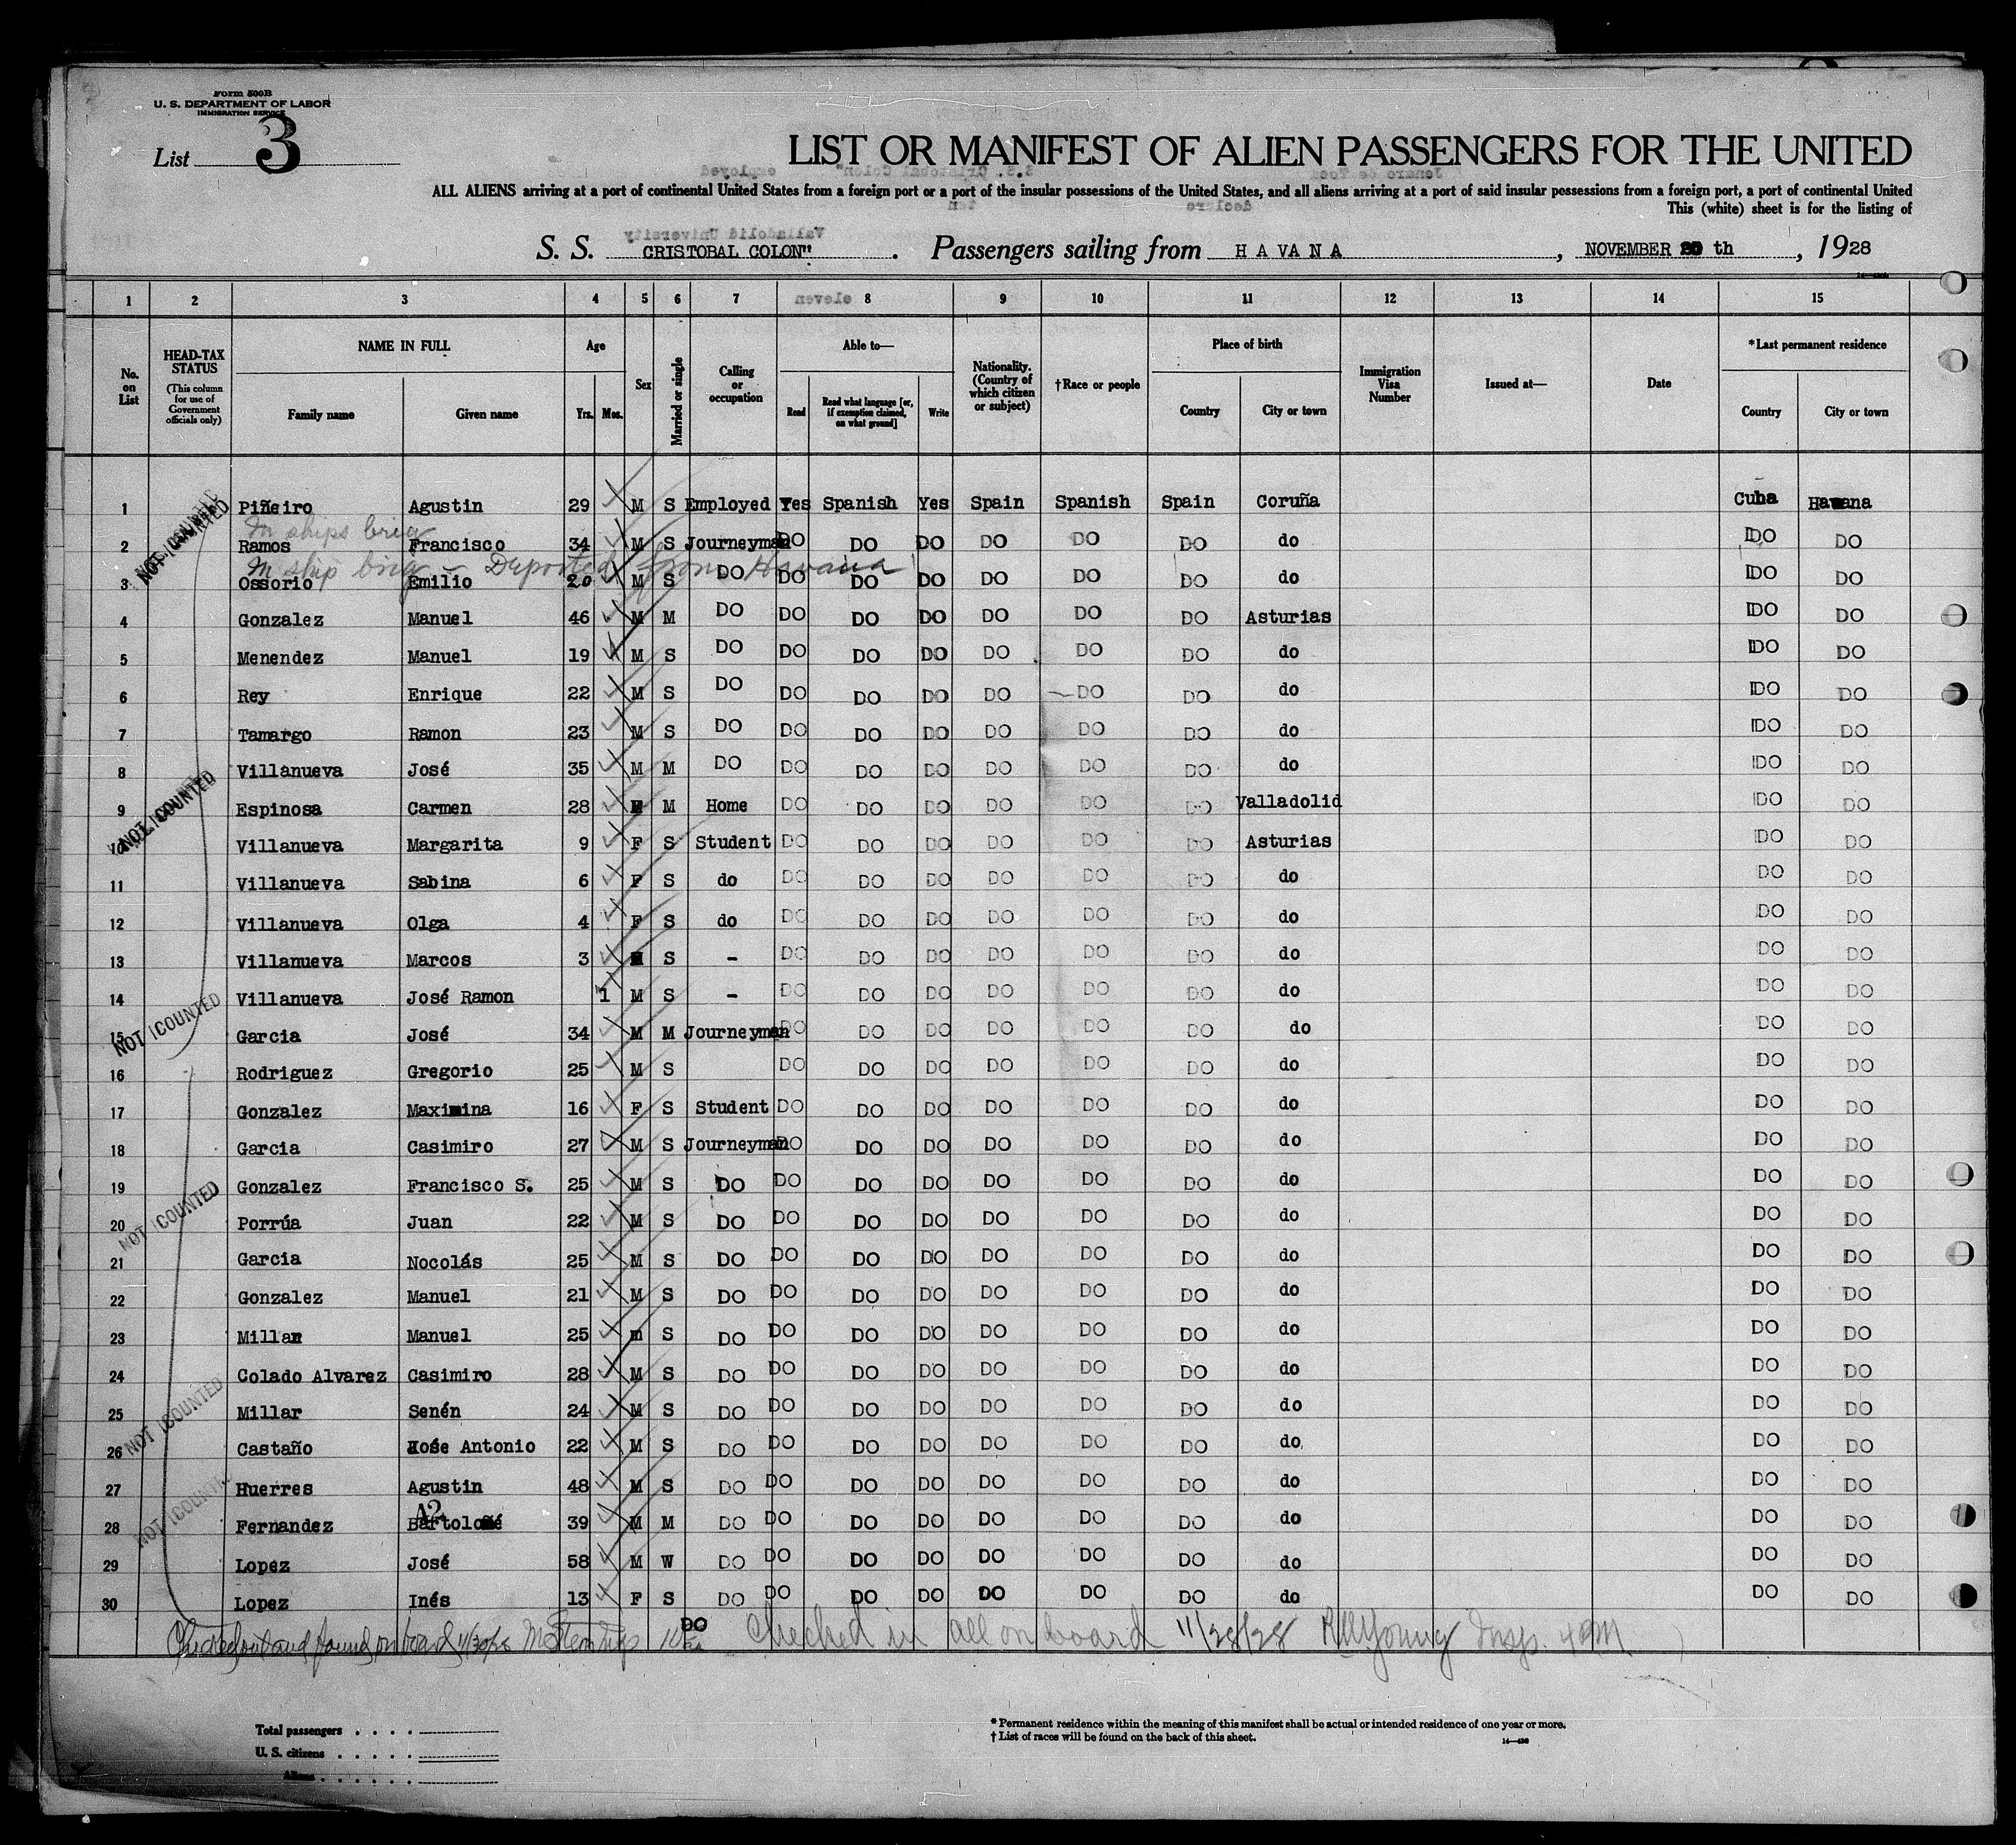 Form 500B
U. S. DEPARTMENT OF LABOR
IMMIGRATION SERVICE
List 3
LIST OR MANIFEST OF ALIEN PASSENGERS FOR THE UNITED
ALL ALIENS arriving at a port of continental United States from a foreign port or a port of the insular possessions of the United States, and all aliens arriving at a port of said insular possessions from a foreign port, a port of continental United
This (white) sheet is for the listing of
S. S. CRISTOBAL COLON" . Passengers sailing from HAVANA , NOVEMBER th , 1928
1 2 3 4 5 6 7 8 9 10 11 12 13 14 15
No. on List
HEAD-TAX STATUS (This column for use of Government officials only)
NAME IN FULL
Family name Given name
Age
Yrs. Mos.
Sex
Married or single
Calling or occupation
Able to—
Read
Read what language [or, if exemption claimed, on what ground]
Write
Nationality. (Country of which citizen or subject)
†Race or people
Place of birth
Country City or town
Immigration Visa Number
Issued at—
Date
*Last permanent residence
Country City or town
1 Piñeiro Agustin 29 M S Employed Yes Spanish Yes Spain Spanish Spain Coruña Cuba Havana
In ships brig
2 Ramos Francisco 34 M S Journeyman DO DO DO DO DO DO do DO DO
In ship brig - Deported from Havana
3 Ossorio Emilio 20 M S DO DO DO DO DO DO DO do DO DO
4 Gonzalez Manuel 46 M M DO DO DO DO DO DO DO Asturias DO DO
5 Menendez Manuel 19 M S DO DO DO DO DO DO DO do DO DO
6 Rey Enrique 22 M S DO DO DO DO DO DO DO do DO DO
7 Tamargo Ramon 23 M S DO DO DO DO DO DO DO do DO DO
8 Villanueva José 35 M M DO DO DO DO DO DO DO do DO DO
9 Espinosa Carmen 28 F M Home DO DO DO DO DO DO Valladolid DO DO
10 Villanueva Margarita 9 F S Student DO DO DO DO DO DO Asturias DO DO
11 Villanueva Sabina 6 F S do DO DO DO DO DO DO do DO DO
12 Villanueva Olga 4 F S do DO DO DO DO DO DO do DO DO
13 Villanueva Marcos 3 M S - DO DO DO DO DO DO do DO DO
14 Villanueva José Ramon 1 M S - DO DO DO DO DO DO do DO DO
15 Garcia José 34 M M Journeyman DO DO DO DO DO DO do DO DO
16 Rodriguez Gregorio 25 M S DO DO DO DO DO DO do DO DO
17 Gonzalez Maximina 16 F S Student DO DO DO DO DO DO do DO DO
18 Garcia Casimiro 27 M S Journeyman DO DO DO DO DO DO do DO DO
19 Gonzalez Francisco S. 25 M S DO DO DO DO DO DO DO do DO DO
20 Porrúa Juan 22 M S DO DO DO DO DO DO DO do DO DO
21 Garcia Nocolás 25 M S DO DO DO DO DO DO DO do DO DO
22 Gonzalez Manuel 21 M S DO DO DO DO DO DO DO do DO DO
23 Millar Manuel 25 m S DO DO DO DO DO DO DO do DO DO
24 Colado Alvarez Casimiro 28 M S DO DO DO DO DO DO DO do DO DO
25 Millar Senén 24 M S DO DO DO DO DO DO DO do DO DO
26 Castaño José Antonio 22 M S DO DO DO DO DO DO DO do DO DO
27 Huerres Agustin 48 M S DO DO DO DO DO DO DO do DO DO
28 Fernandez Bartolomé 39 M M DO DO DO DO DO DO DO do DO DO
29 Lopez José 58 M W DO DO DO DO DO DO DO do DO DO
30 Lopez Inés 13 F S DO DO DO DO DO DO DO do DO DO
NOT COUNTED
NOT COUNTED
NOT COUNTED
NOT COUNTED
NOT COUNTED
Checked out and found on board 11/30/28 DO Checked in all on board 11/28/28 RW Young Insp. 4 PM
Total passengers . . . .
U. S. citizens . . . . .
Aliens . . . . . .
* Permanent residence within the meaning of this manifest shall be actual or intended residence of one year or more.
† List of races will be found on the back of this sheet.